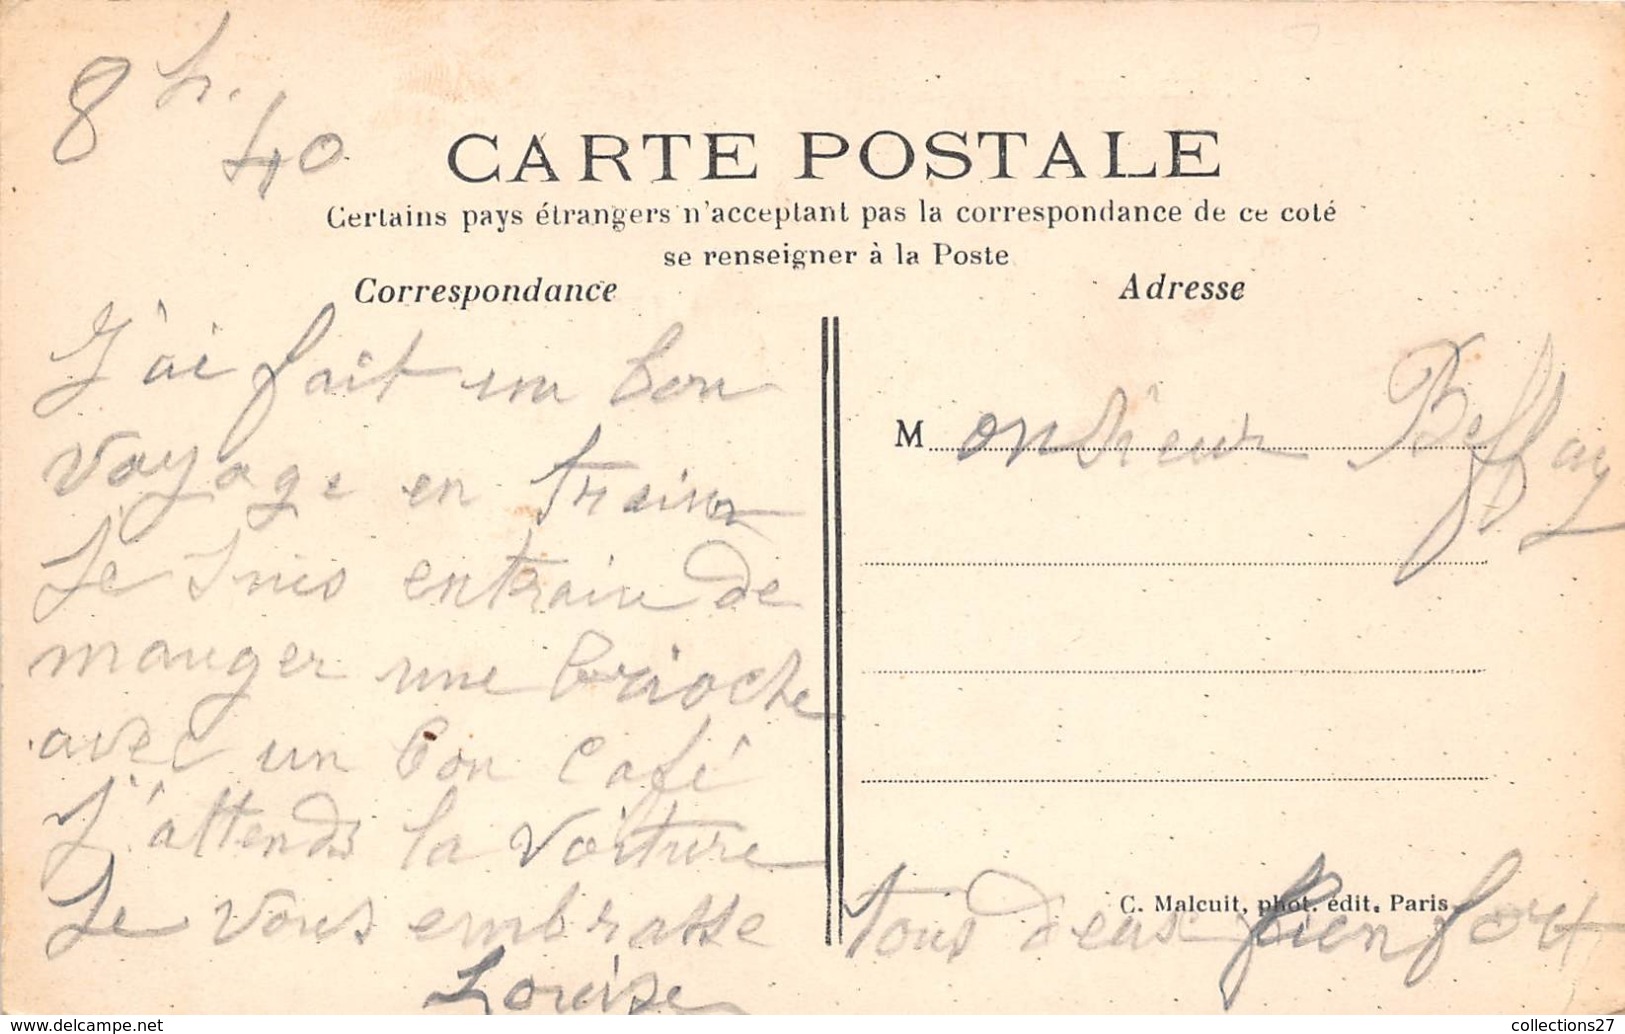 8 h. 40
CARTE POSTALE
Certains pays étrangers n'acceptant pas la correspondance de ce coté
se renseigner à la Poste
Correspondance
J'ai fait un bon
voyage en train
Je suis entrain de
manger une brioche
avec un bon café
J'attends la voiture
Je vous embrasse tous deux bien fort
Louise
Adresse
Monsieur Beffay
C. Malcuit, phot. édit. Paris
collections27